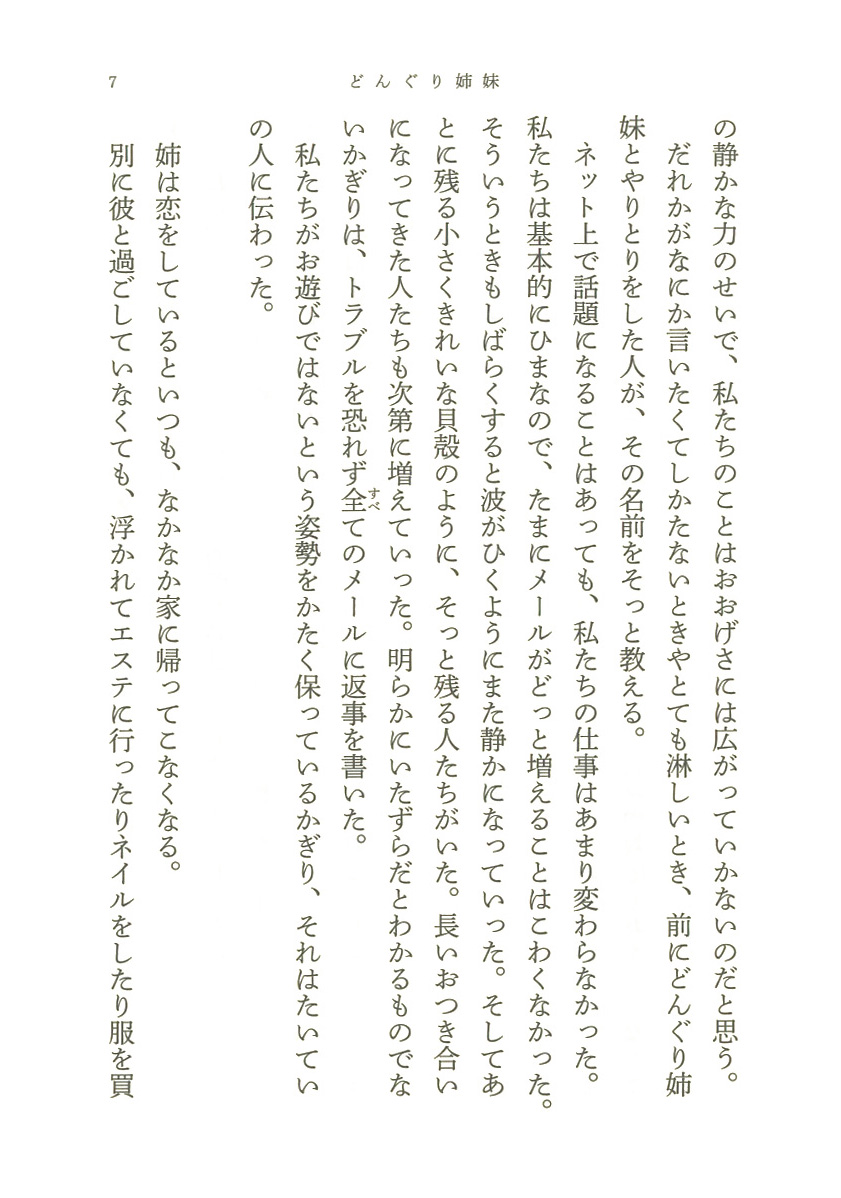 7
どんぐり姉妹
の静かな力のせいで、私たちのことはおおげさには広がっていかないのだと思う。
だれかがなにか言いたくてしかたないときやとても淋しいとき、前にどんぐり姉
妹とやりとりをした人が、その名前をそっと教える。
ネット上で話題になることはあっても、私たちの仕事はあまり変わらなかった。
私たちは基本的にひまなので、たまにメールがどっと増えることはこわくなかった。
そういうときもしばらくすると波がひくようにまた静かになっていった。そしてあ
とに残る小さくきれいな貝殻のように、そっと残る人たちがいた。長いおつき合い
になってきた人たちも次第に増えていった。明らかにいたずらだとわかるものでな
いかぎりは、トラブルを恐れず全すべてのメールに返事を書いた。
私たちがお遊びではないという姿勢をかたく保っているかぎり、それはたいてい
の人に伝わった。
姉は恋をしているといつも、なかなか家に帰ってこなくなる。
別に彼と過ごしていなくても、浮かれてエステに行ったりネイルをしたり服を買